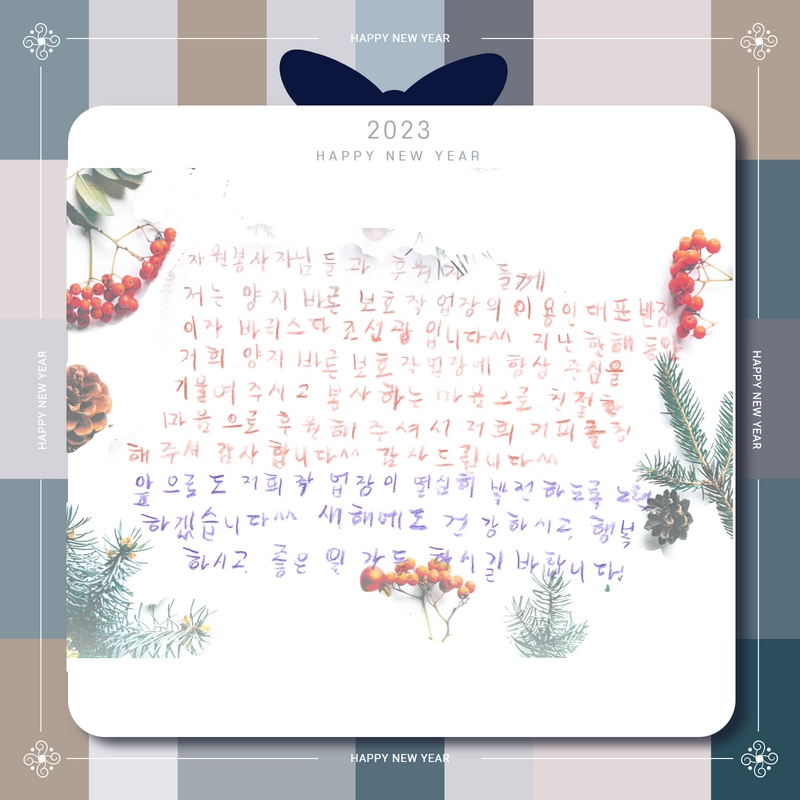 HAPPY NEW YEAR
2023
HAPPY NEW YEAR
자원봉사자님들과 후원 들께
저는 양지 바른 보호작업장의 이용인대표 반장
이자 바리스타 조선광 입니다^^ 지난 한해 동안
저희 양지 바른 보호작업장에 항상 관심을
기울여 주시고 봉사하는 마음으로 친절한
마음으로 후원해 주셔서 저희 커피를
해주셔 감사합니다^^ 감사드립니다^^
앞으로도 저희 작업장이 열심히 발전하도록 노력
하겠습니다^^ 새해에도 건강하시고, 행복
하시고, 좋은 일 가득 하시길 바랍니다!
HAPPY NEW YEAR
HAPPY NEW YEAR
HAPPY NEW YEAR